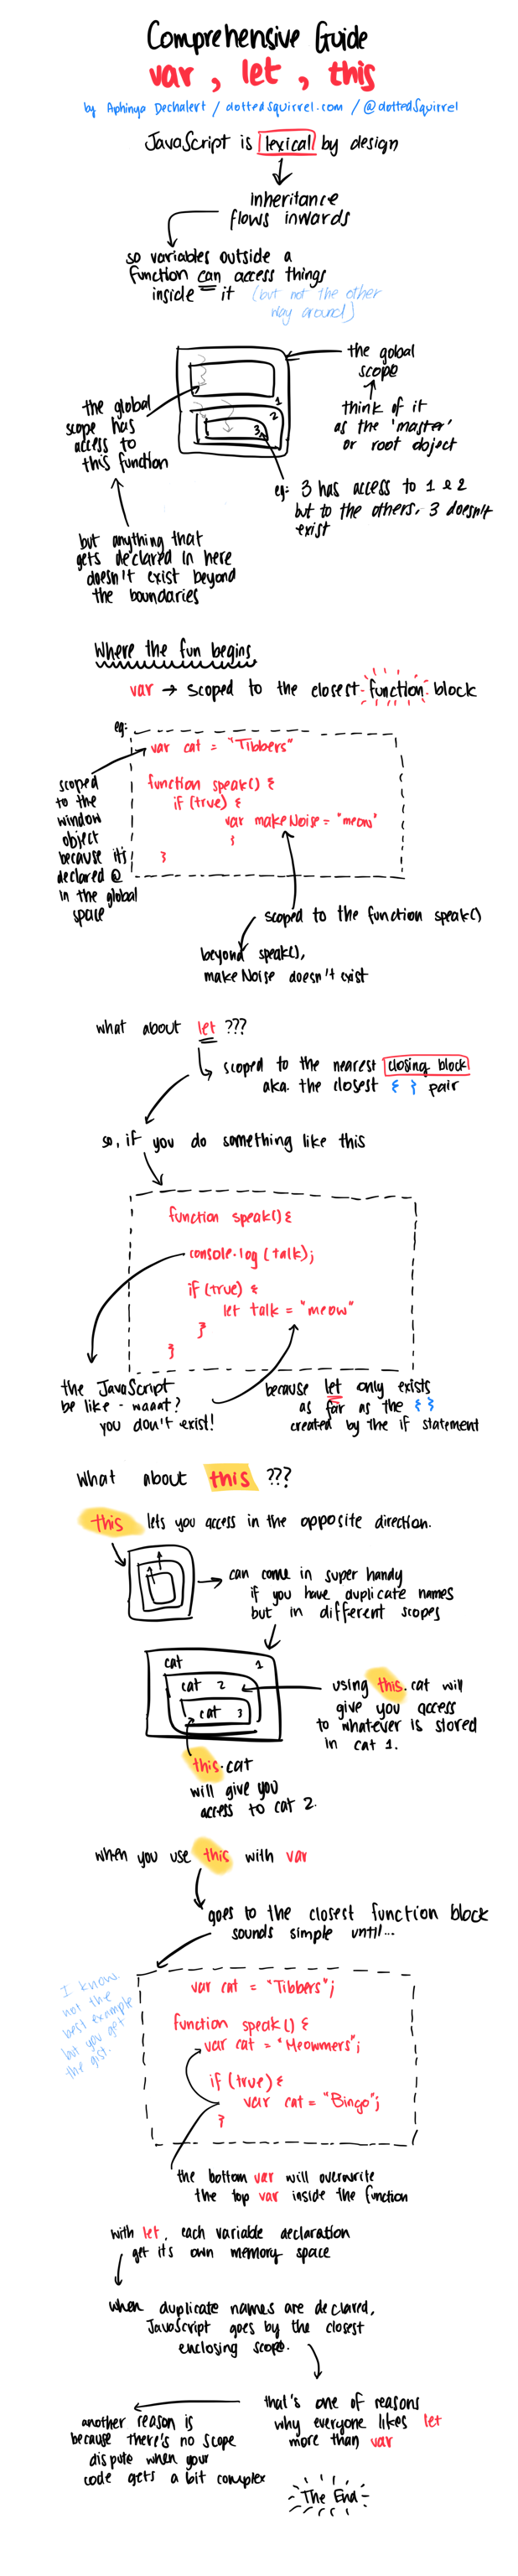 Comprehensive Guide
var, let, this
by Aphinya Dechalert / dottedsquirrel.com / @dottedsquirrel
JavaScript is lexical by design
inheritance
flows inwards
so variables outside a
function can access things
inside it (but not the other
way around)
the gobal
scope
think of it
as the 'master'
or root object
the global
scope has
access to
this function
1
2
3
eg: 3 has access to 1 & 2
but to the others, 3 doesn't
exist
but anything that
gets declared in here
doesn't exist beyond
the boundaries
Where the fun begins
var → scoped to the closest function block
eg:
var cat = "Tibbers"
function speak() {
if (true) {
var makeNoise = "meow"
}
}
scoped
to the
window
object
because it's
declared @
in the global
space
scoped to the function speak()
beyond speak(),
makeNoise doesn't exist
what about let ???
scoped to the nearest closing block
aka. the closest { } pair
so, if you do something like this
function speak() {
console.log (talk);
if (true) {
let talk = "meow"
}
}
the JavaScript
be like - waaat?
you don't exist!
because let only exists
as far as the { }
created by the if statement
What about this ???
this lets you access in the opposite direction.
can come in super handy
if you have duplicate names
but in different scopes
cat 1
cat 2
cat 3
using this.cat will
give you access
to whatever is stored
in cat 1.
this.cat
will give you
access to cat 2.
when you use this with var
goes to the closest function block
sounds simple until...
I know.
not the
best example
but you get
the gist.
var cat = "Tibbers";
function speak() {
var cat = "Meowmers";
if (true) {
var cat = "Bingo";
}
the bottom var will overwrite
the top var inside the function
with let, each variable declaration
get it's own memory space
when duplicate names are declared,
JavaScript goes by the closest
enclosing scope.
that's one of reasons
why everyone likes let
more than var
another reason is
because there's no scope
dispute when your
code gets a bit complex
The End